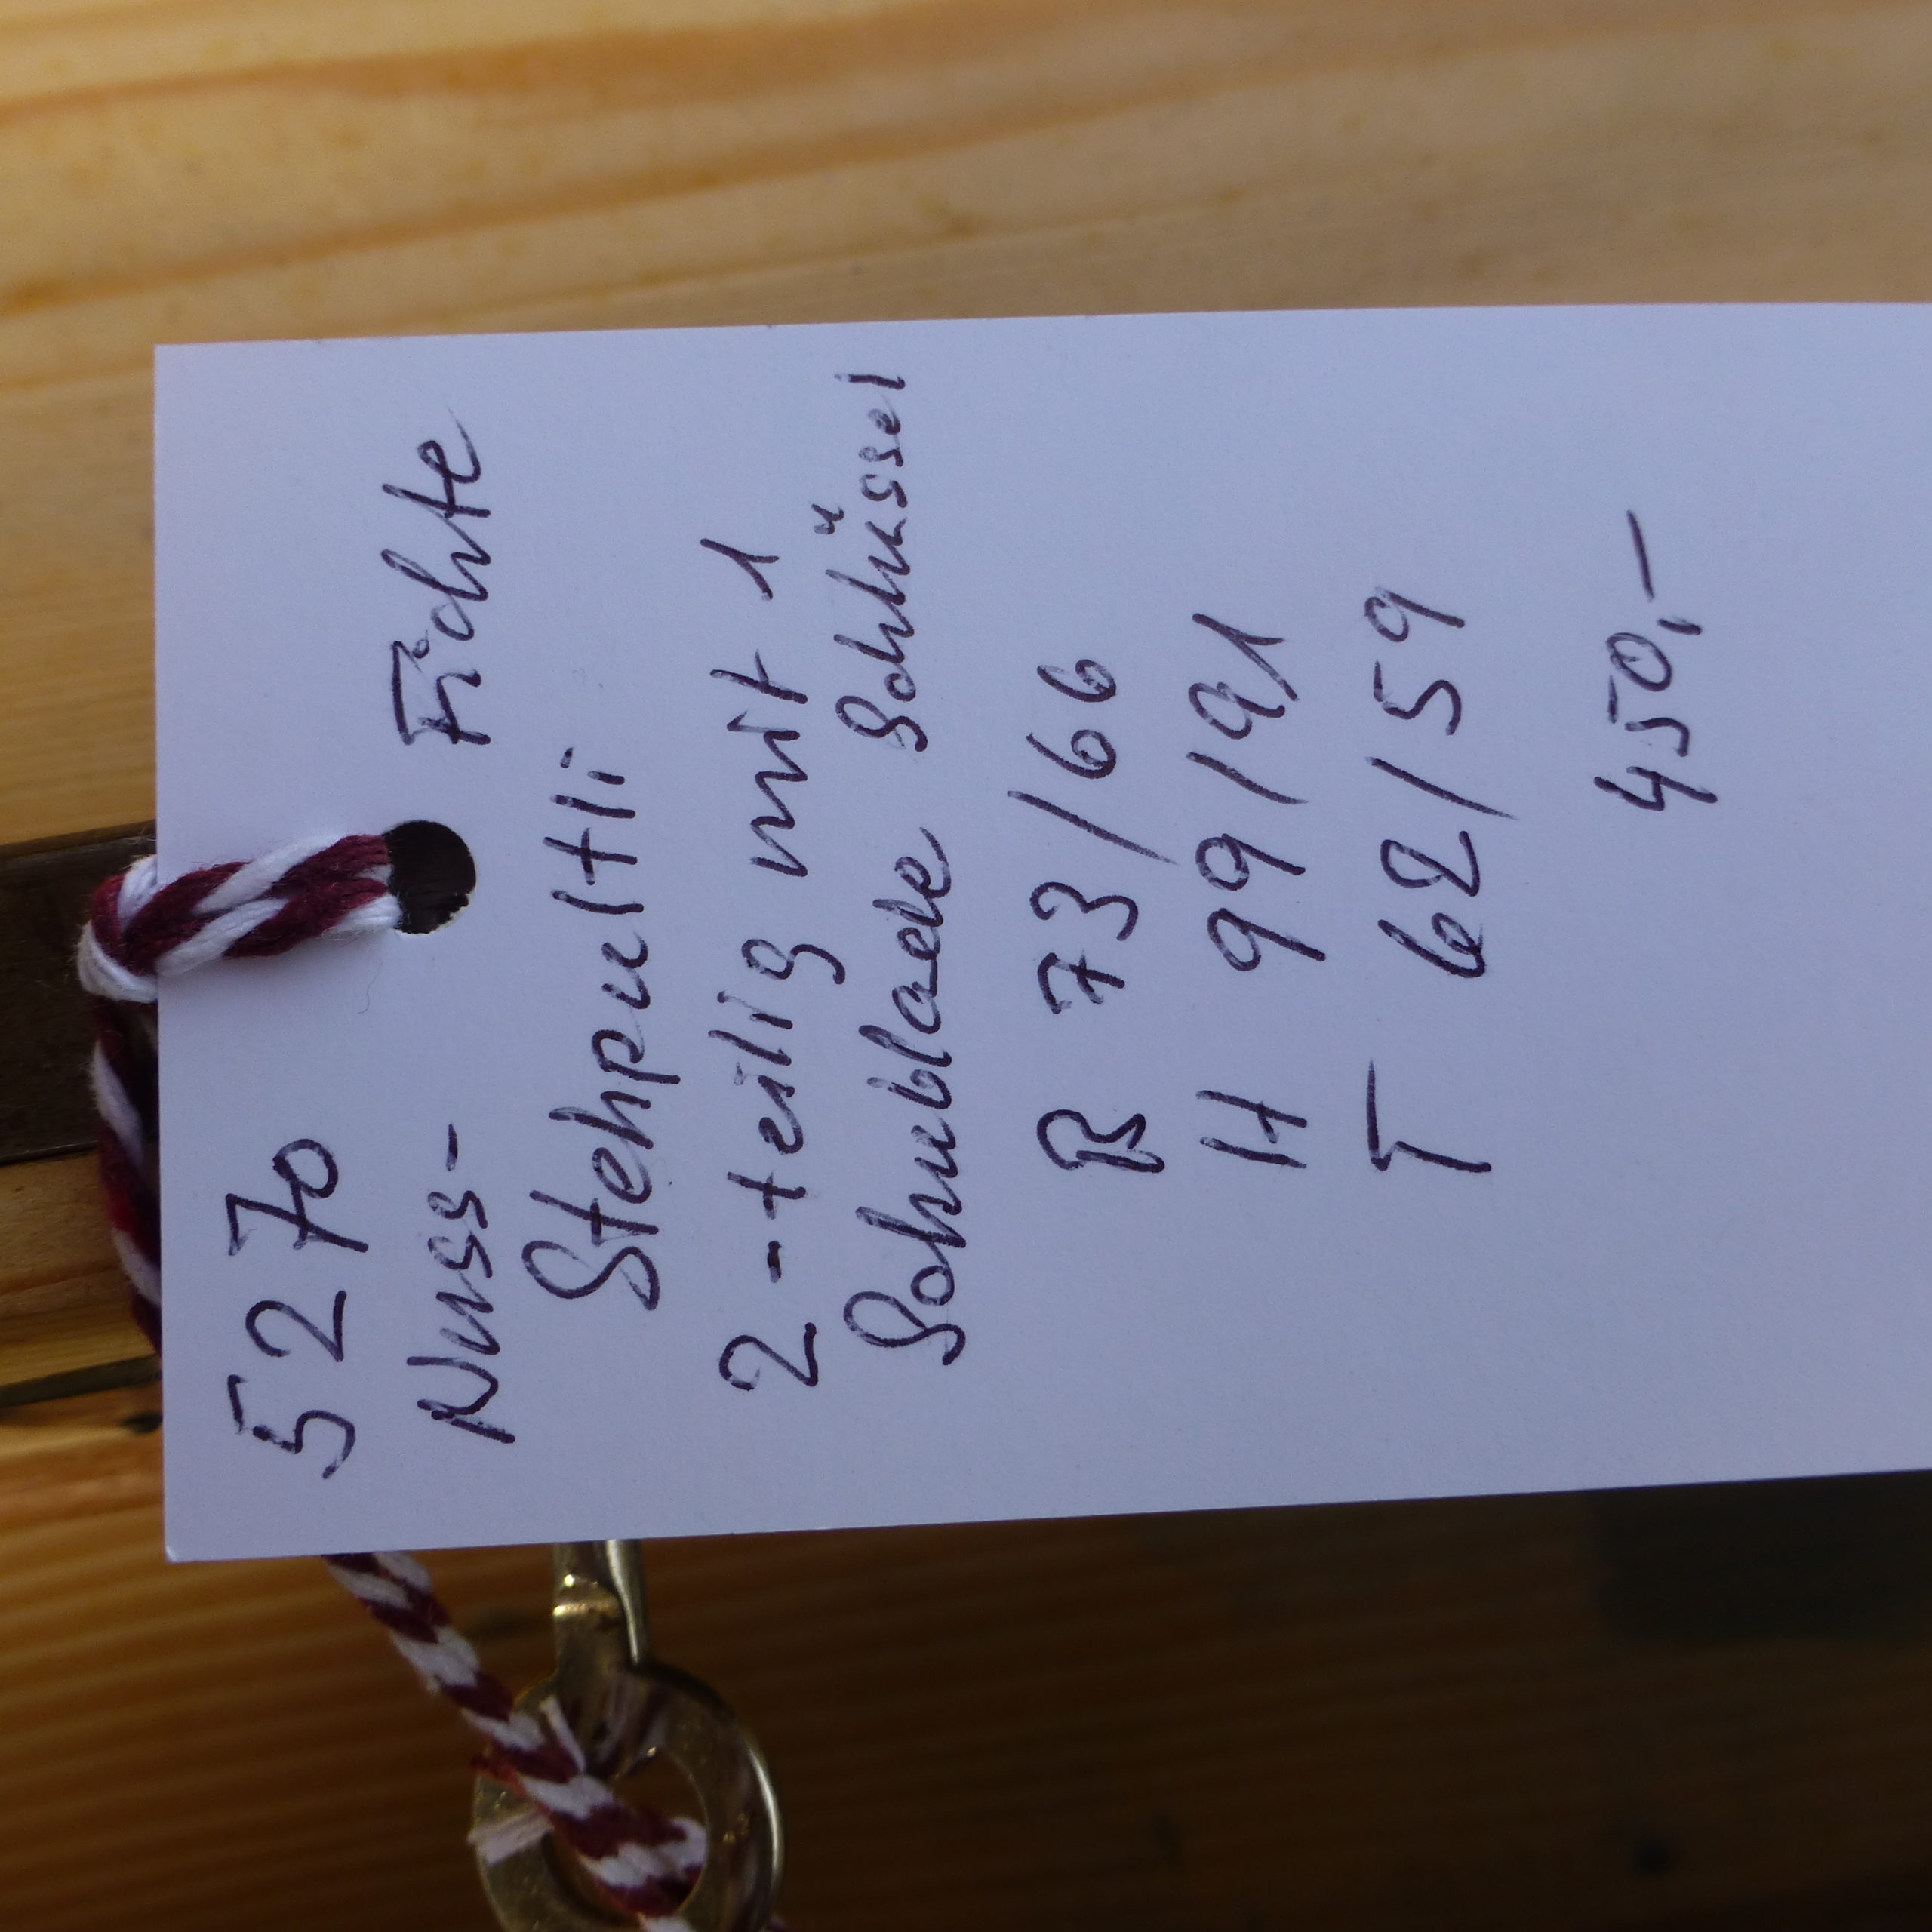 5270
Nuss- Fichte
Stehpultli
2-teilig mit 1
Schublade Schlüssel
B 73/66
H 99/91
T 62/59
450,-